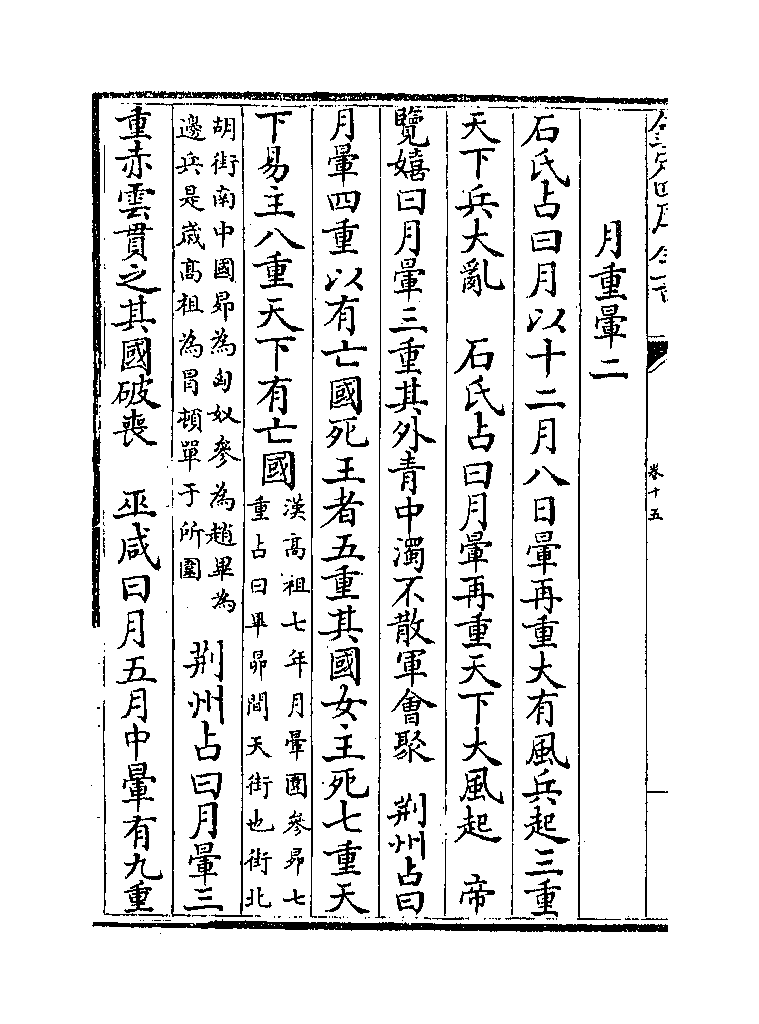 欽定四庫全書
卷十五
月重暈二
石氏占曰月以十二月八日暈再重大有風兵起三重
天下兵大亂　石氏占曰月暈再重天下大風起　帝
覽嬉曰月暈三重其外青中濁不散軍會聚　荆州占曰
月暈四重以有亡國死王者五重其國女主死七重天
下易主八重天下有亡國
漢高祖七年月暈圍參昴七
重占曰畢昴間天街也街北
胡街南中國昴為匈奴參為趙畢為
邊兵是歳高祖為冒頓單于所圍
荆州占曰月暈三
重赤雲貫之其國破喪　巫咸曰月五月中暈有九重